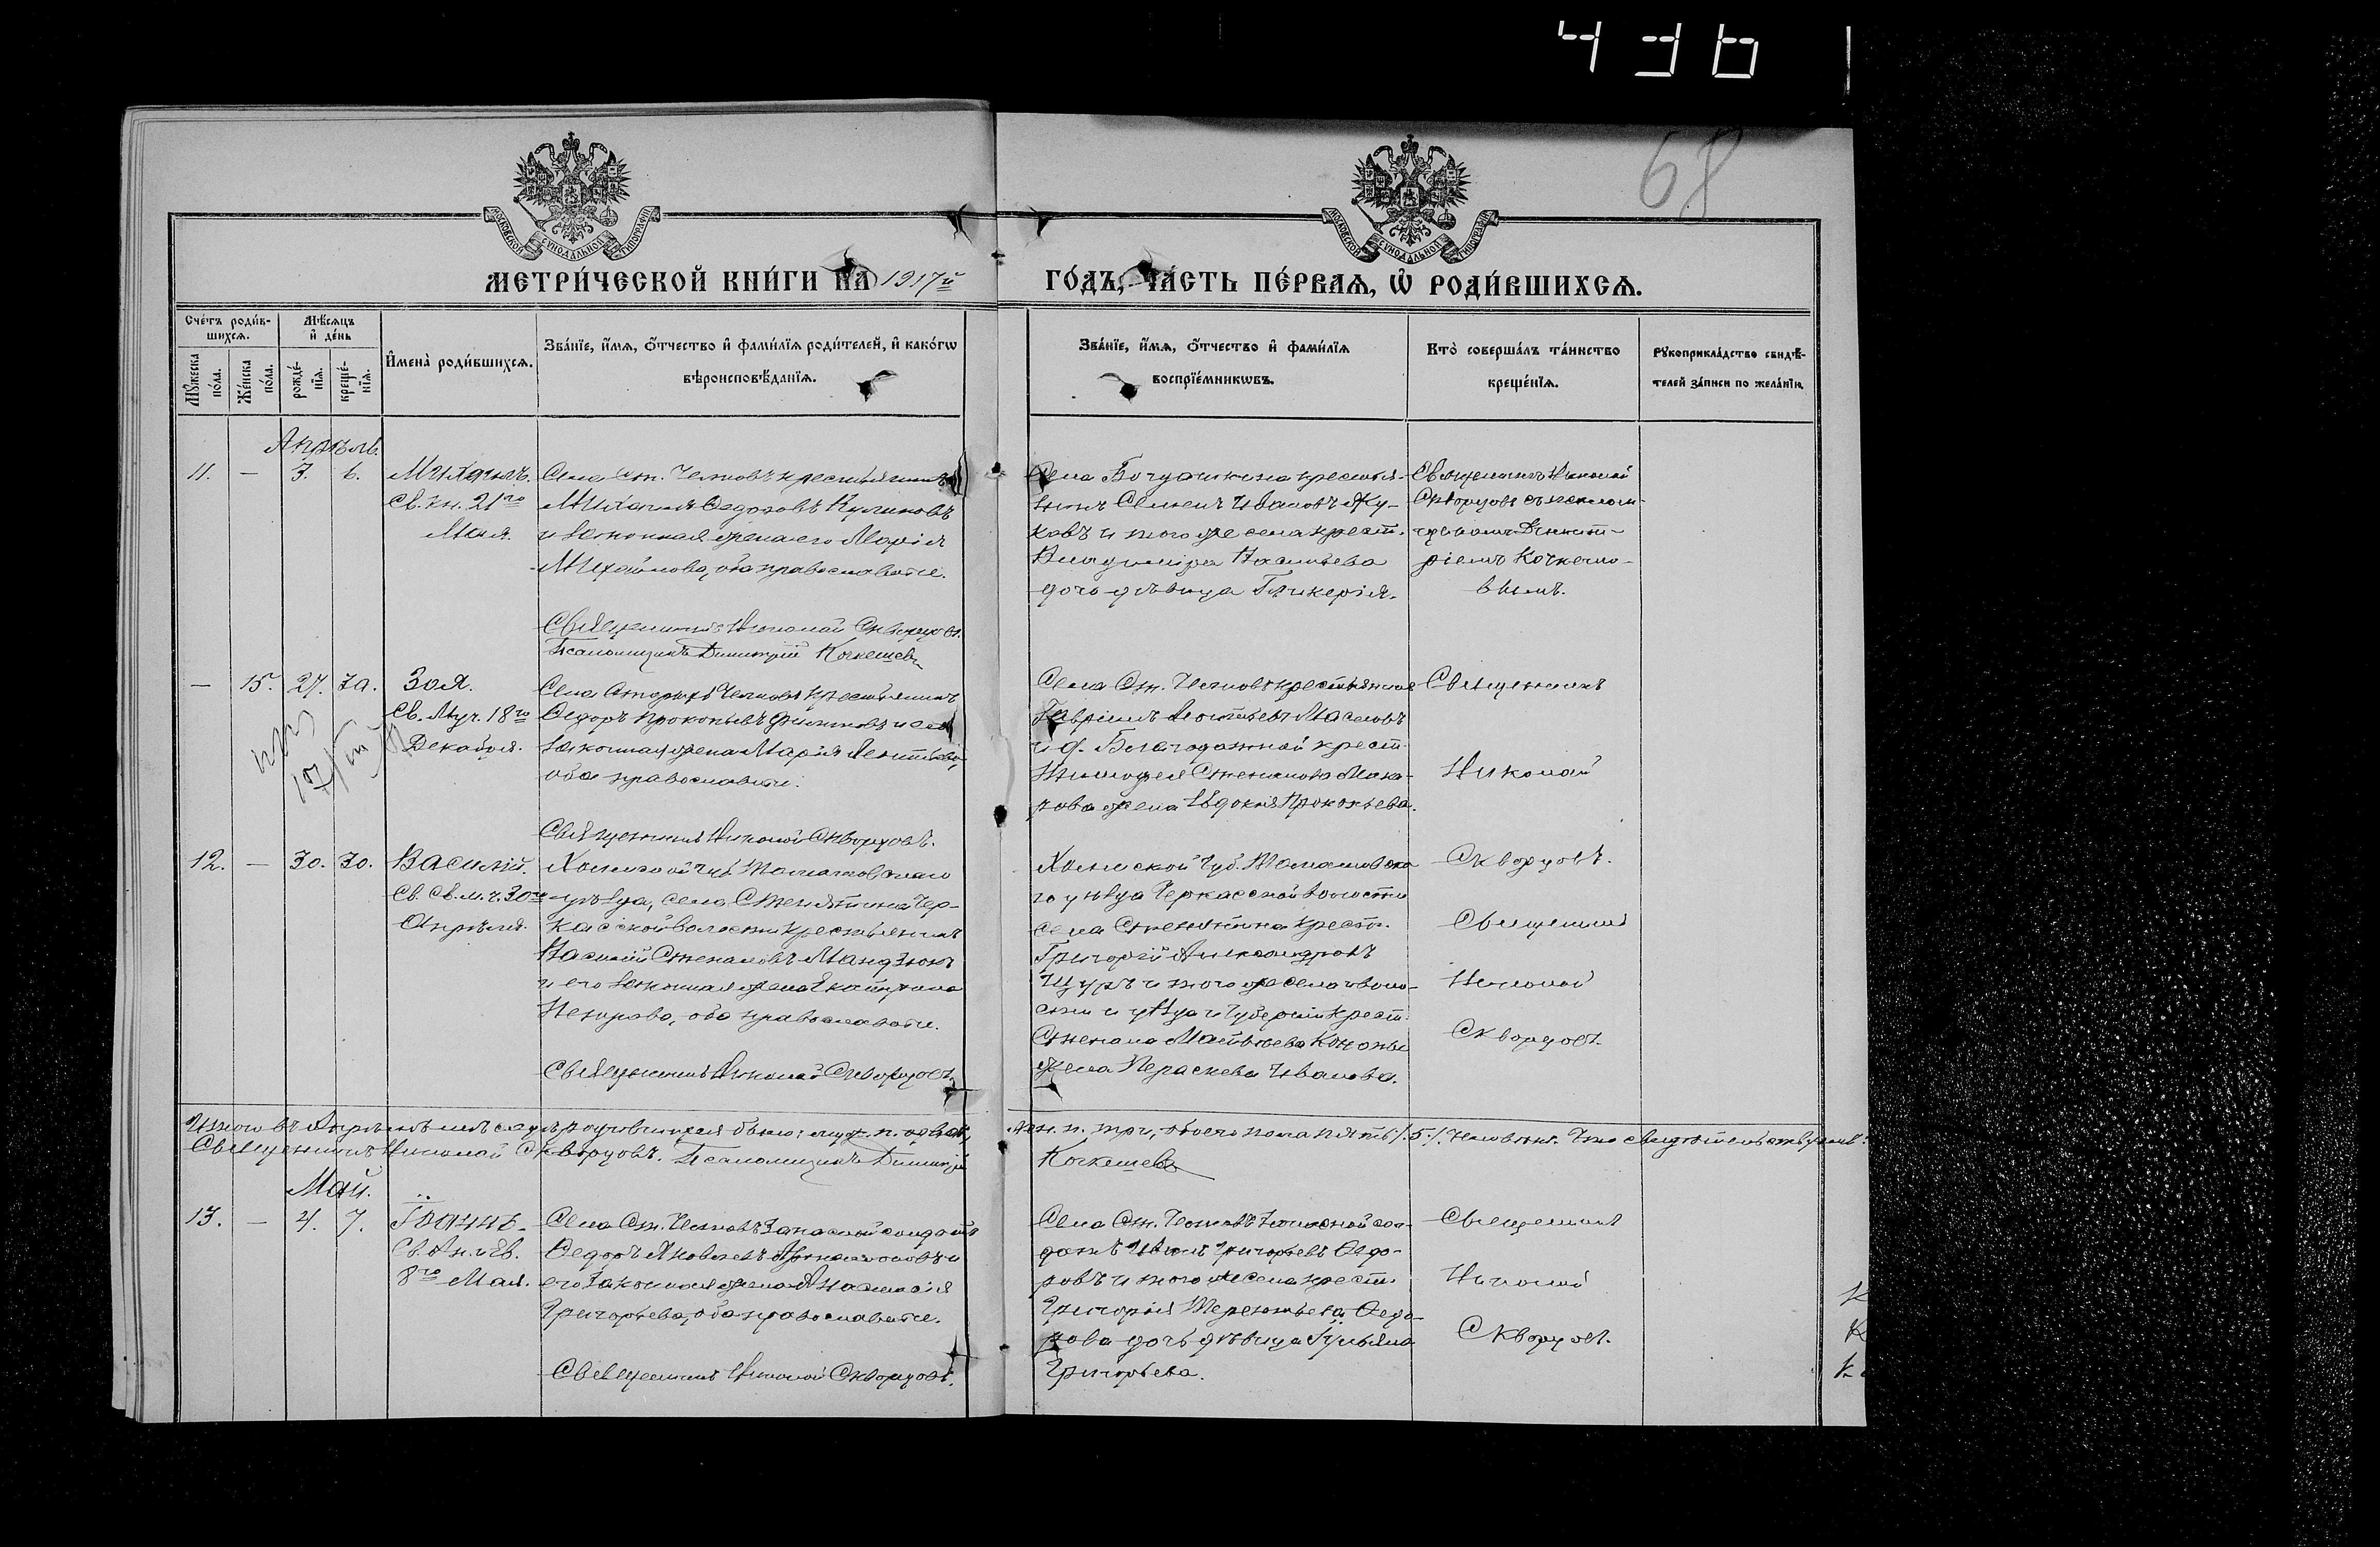 436
68
МОСКОВСКОЙ СѴНОДАЛЬНОЙ ТИПОГРАФІИ
МОСКОВСКОЙ СѴНОДАЛЬНОЙ ТИПОГРАФІИ
МЕТРИ́ЧЕСКОЙ КНИ́ГИ НА 1917й
ГО́ДЪ, ЧА́СТЬ ПЕ́РВАЯ, Ѡ҆ РОДИ́ВШИХСЯ.
Сче́тъ роди́в-
шихся.
Мѣ́сяцъ
и҆ де́нь
Мꙋ́жеска по́ла.
Же́нска по́ла.
рожде́-
нїя.
креще́-
нїя.
И҆мена̀ роди́вшихся.
Зва́нїе, и҆́мя, о҆́тчество и҆ фами́лїя роди́телей, и҆ како́гѡ
вѣроисповѣ́данїя.
Зва́нїе, и҆́мя, о҆́тчество и҆ фами́лїя
воспрїе́мникѡвъ.
Кто̀ соверша́лъ та́инство
креще́нїя.
Рꙋкоприкла́дство свидѣ́-
телей за́писи по жела́нїю.
Апрѣль.
11. — 3. 6. Михаилъ.
Св. кн. 21го
Мая.
Села Ст. Челновъ крестьянинъ
Михаилъ Ѳедоровъ Куликовъ
и законная жена его Марія
Михайлова, оба православные.
Священникъ Николай Скворцовъ.
Псаломщикъ Димитрій Кочкешевъ
Села Богдашкина крестья-
нинъ Семенъ Ивановъ Жу-
ковъ и того же села крест.
Владиміра Васильева
дочь дѣвица Гликерія.
Священникъ Николай
Скворцовъ съ псалом-
щикомъ Димит-
ріемъ Кочкешо-
вымъ.
— 15. 27. 30. Зоя.
Св. Муч. 18го
Декабря.
Села Старыхъ Челновъ крестьянинъ
Ѳедоръ Прокопьевъ Филиповъ и его
законная жена Марія Леонтьева,
оба православные.
Священникъ Николай Скворцовъ.
Села Ст. Челновъ крестьянинъ
Гавріилъ Леонтьевъ Масловъ
и д. Благодатной крест.
Тимофея Степанова Мака-
рова жена Евдокія Прокопьева.
Священникъ
Николай
Скворцовъ.
12. — 30. 30. Василій.
Св. Св. м. ч. 30го
Апрѣля.
Холмской губ. Томашовскаго
уѣзда, села Стенятина Чер-
касской волости крестьянинъ
Василій Степановъ Мандзюкъ
и его законная жена Екатерина
Петрова, оба православные.
Священникъ Николай Скворцовъ.
Холмской губ. Томашовска-
го уѣзда Черкасской волости
села Стенятина крест.
Григорій Александровъ
Щуръ и того же села и воло-
сти и уѣзда и губерніи крест.
Степана Матвѣева
жена Параскева Иванова.
Священникъ
Николай
Скворцовъ.
Итого въ Апрѣлѣ мѣсяцѣ родившихся было: муж. п. два,
жен. п. три, обоего пола пять /.5./. человѣкъ. Что свидѣтельствуемъ:
Священникъ Николай Скворцовъ. Псаломщикъ Димитрій
Кочкешевъ
Май.
13. — 4. 7. Іоаннъ.
Св. Ап. и Ев.
8го Мая.
Села Ст. Челновъ запасной солдатъ
Ѳедоръ Яковлевъ и
его законная жена Анастасія
Григорьева, оба православные.
Священникъ Николай Скворцовъ.
Села Ст. Челновъ запасной сол-
датъ Иванъ Григорьевъ Ѳедо-
ровъ и того же села крест.
Григорія Терентьева Ѳедо-
рова дочь дѣвица Іуліана
Григорьева.
Священникъ
Николай
Скворцовъ.